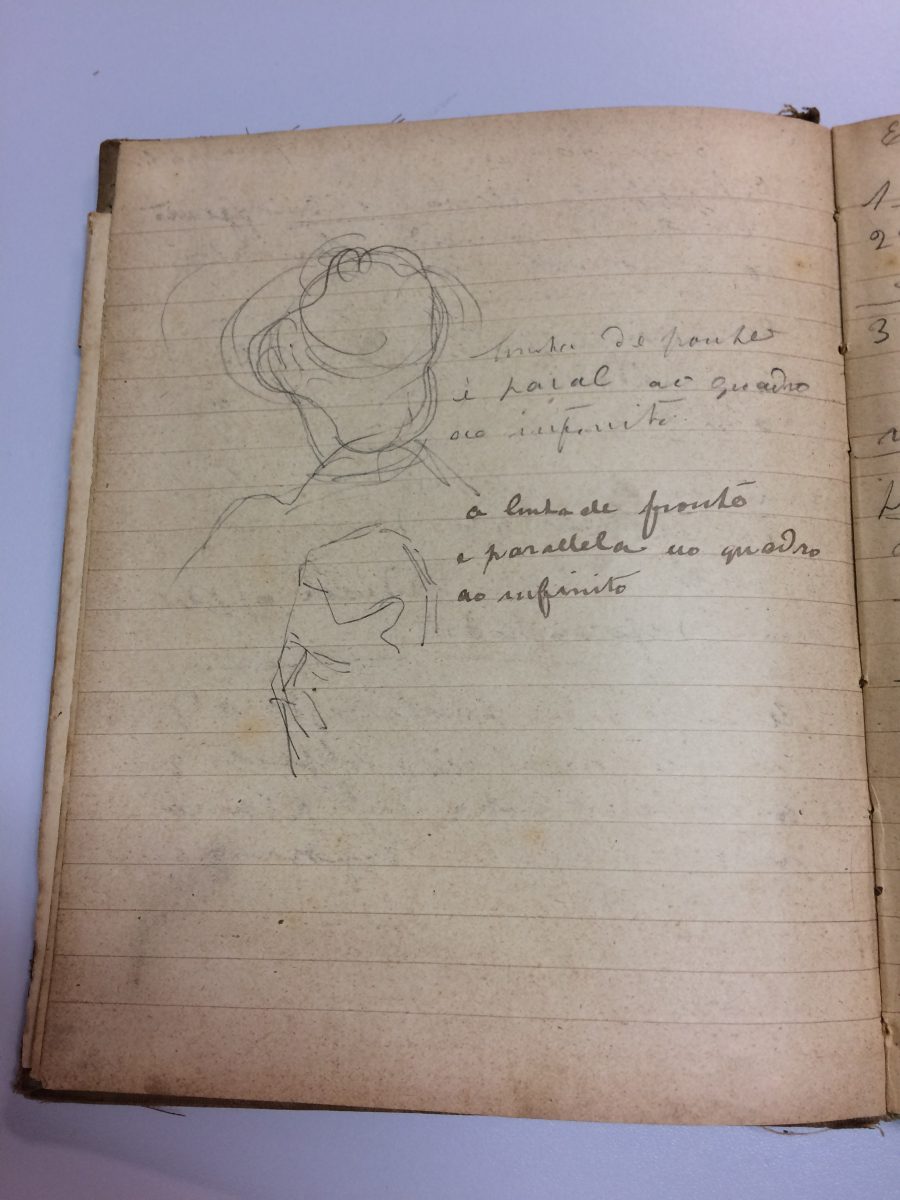 linha de fronte
é paral ao quadro
ao infinito
a linha de fronte
e parallela ao quadro
ao infinito
1
2
3